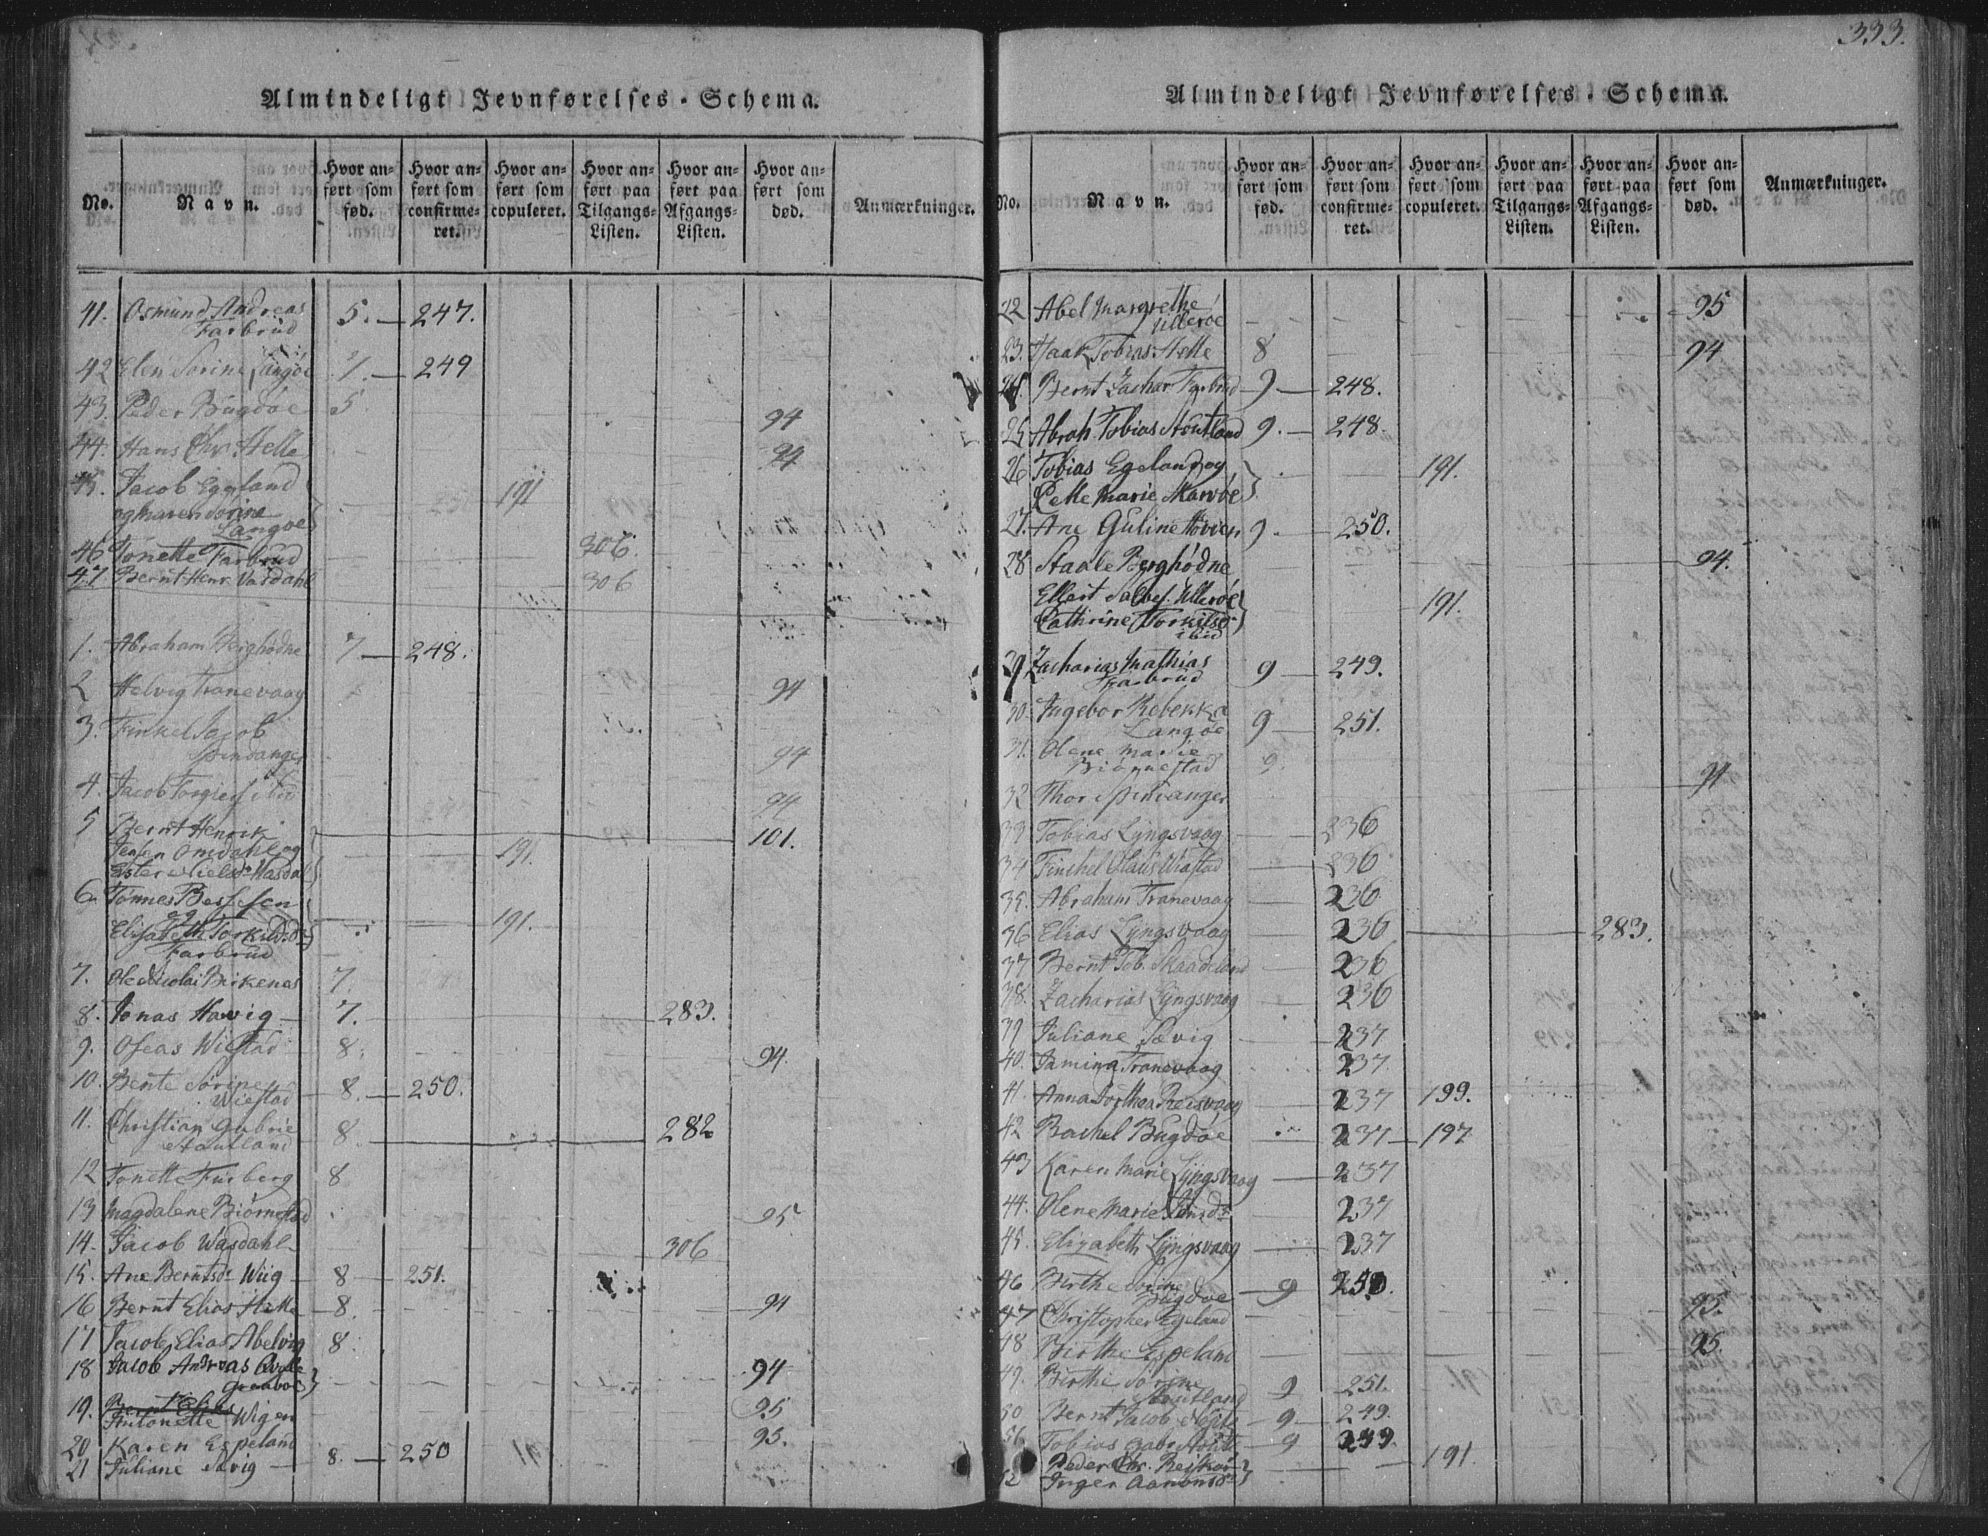 Almindeligt Jevnførelses-Schema.
No. Navn. Hvor anført som fød. Hvor anført som confirmeret. Hvor anført som copuleret. Hvor anført paa Tilgangs-Listen. Hvor anført paa Afgangs-Listen. Hvor anført som død. Anmærkninger.
41. Osmund Andreas
Farbrud 5. — 247.
42 Elen Sorine Langøe 7. — 249
43. Peder Bugdøe 5 94
44. Hans Chr. Helle 94
45. Jacob Eggland
og Maren Sorine 191
Langøe
46 Tonette Farbrud 306.
47 Bernt Henr. Vasdahl 306
1. Abraham Berghødne 7 — 248.
2 Helvig Tranevaag 94
3. Finkel Jacob
Spindanger 94
4. Jacob Torgiers ibid 94
5 Bernt Henrik 101.
Jensen Omdahl og 191.
Ester Nielsd. Wasdal
6. Tønnes Berssen
og 191.
Elisabeth Torkildsd.
Farbrud
7. Ole Nicolai Birkenes 7.
8. Jonas Hawig 7. 283.
9. Oseas Wiestad 8. 94.
10. Bente Sørine
Wiestad 8. — 250.
11. Christian Gabrie
Stoutland 8. 282
12 Tonette Furberg 8
13 Magdalene Biørnestad 95
14. Jacob Wasdahl 306
15. Ane Berntsd. Wiig 8 — 251.
16 Bernt Elias Helle 8. 94
17 Jacob Elias Abelvig 8.
18 Jacob Andreas
94
19. Bernt Elias
Antonette Wigen 95
20. Karen Espeland 95.
21 Juliane Sævig 8. — 250
333.
Almindeligt Jevnførelses-Schema.
No. Navn. Hvor anført som fød. Hvor anført som confirmeret. Hvor anført som copuleret. Hvor anført paa Tilgangs-Listen. Hvor anført paa Afgangs-Listen. Hvor anført som død. Anmærkninger.
22 Abel Margrethe
Ullerøe 95
23. Haak Tobias Helle 8 94
24. Bernt Zachar Farbrud 9 — 248.
25 Abrah. Tobias Stoutland 9. — 248.
26 Tobias Egeland og 191.
Pelle Marie Skarvøe
27. Ane Guline Hoven 9. — 250.
28 Staale Berghødne 94.
Ellert Salves. Ullerøe 191.
Cathrine Torkilsd.
ibid
29 Zacharias Mathias
Farbrud 9 — 249.
30. Ingebor Rebekka
Langøe 9 — 251.
31. Olene Marie
Biørnestad 9.
32 Thor Spindanger 94
33 Tobias Lyngsvaag 236
34 Finchel Olaus Wiastad 236
35. Abraham Tranevaag 236
36 Elias Lyngsvaag 236 283.
37 Bernt Tob. Skaadeland 236
38. Zacharias Lyngsvaag 236
39 Juliane Sævig 237
40. Jamina Tranevaag 237.
41. Anna Dorthea Reisvaag 237 199.
42 Rachel Bugdøe 237 — 197
43 Karen Marie Lyngsvaag 237
44. Olene Marie Jonsd. 237
45. Elizabeth Lyngsvaag 237
46 Birthe Sorine
Bugdøe 9 250.
47 Christopher Egeland 95.
48 Birthe Espeland 95.
49. Birthe Sorine
Stoutland 9 251.
50 Bernt Jacob 9 — 249.
Tobias 9 249.
Peder Chr. 191.
52 Inger Aanonsd.